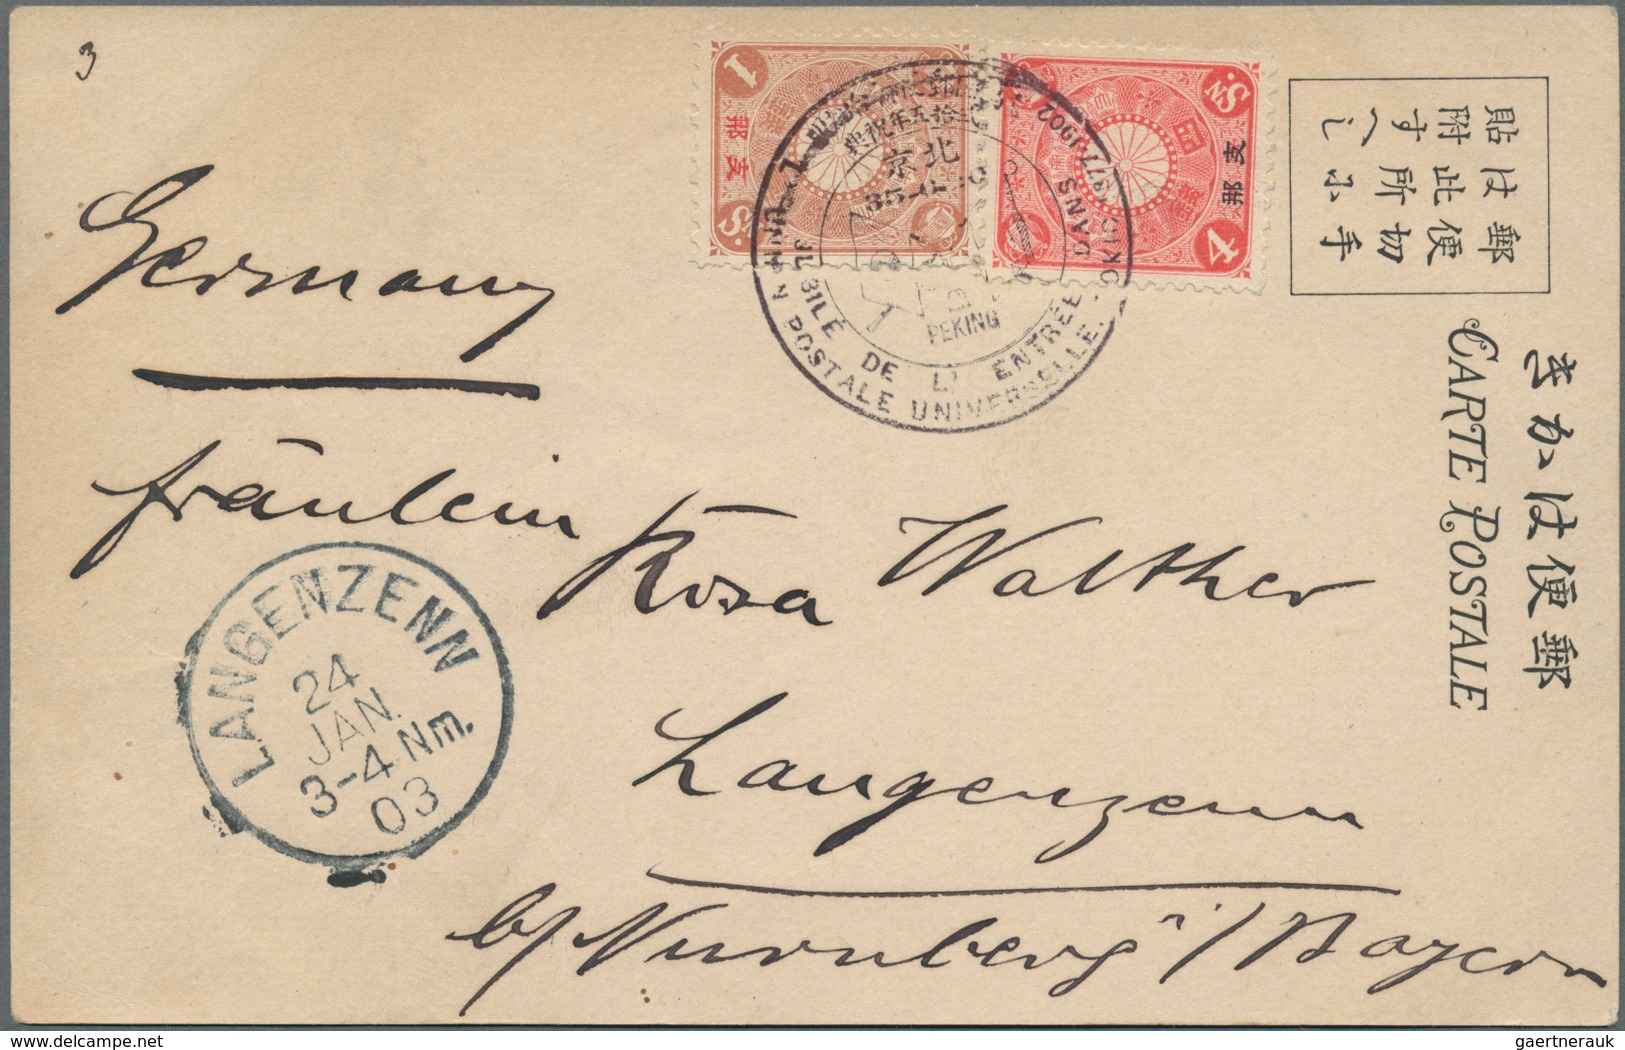 3
1
Sn.
支那
4
Sn.
支那
1877-1902
拾五年祝典
北京
DANS
PEKING
DE L' ENTRÉE
POSTALE UNIVERSELLE.
郵便切手
は此所に
貼附すへし
郵便はかき
CARTE POSTALE
Germany
Fräulein Rosa Walther
Langenzenn
b/Nürnberg i/Bayern
LANGENZENN
24
JAN.
3-4 Nm.
03
gaertnerauk